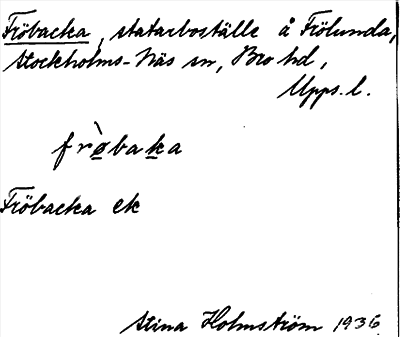 Fröbacka, statarboställe å Frölunda,
Stockholms-Näs sn, Bro hd,
Upps. l.
frø̀baka
Fröbacka ek
Stina Holmström 1936